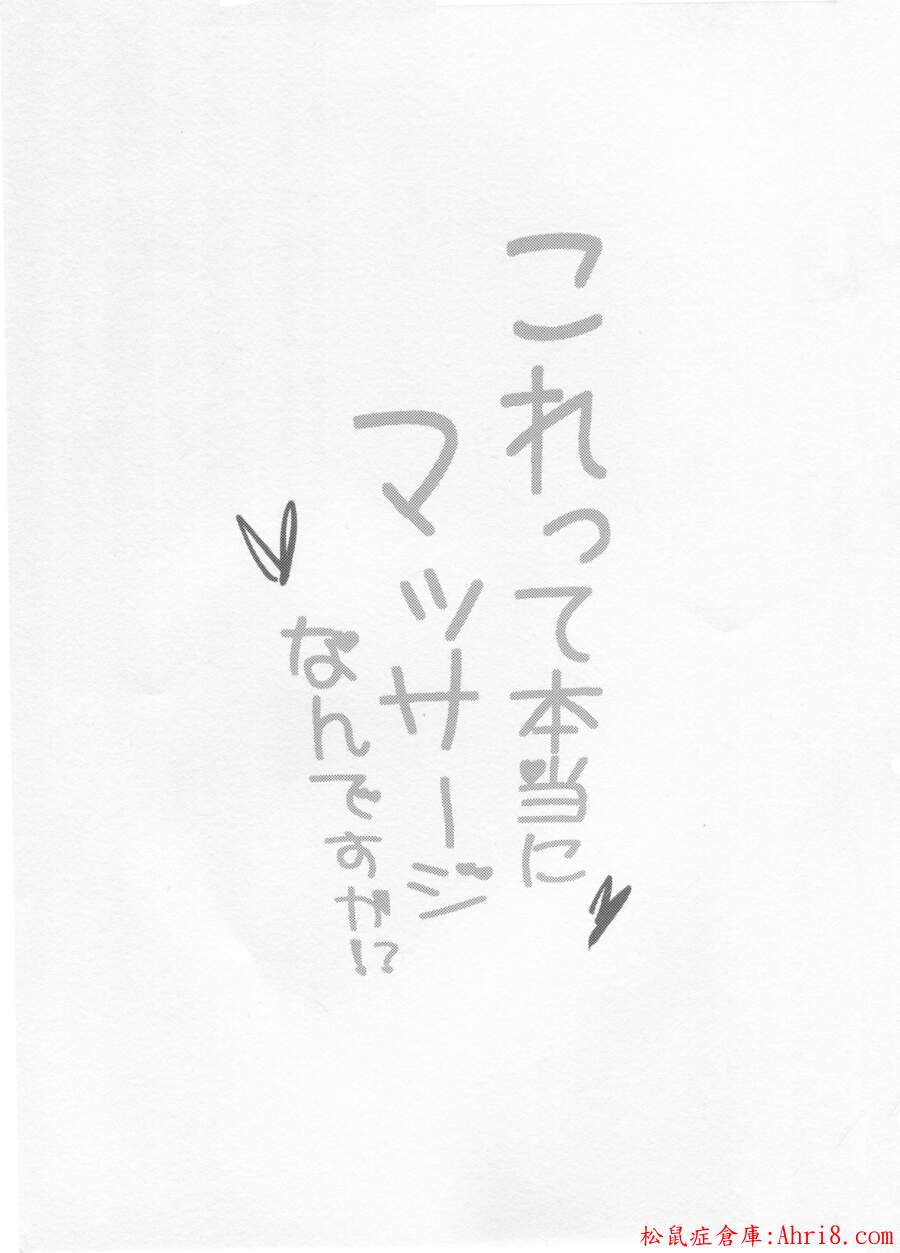 これって本当に
マッサージ
なんですか!?
松鼠症倉庫:Ahri8.com